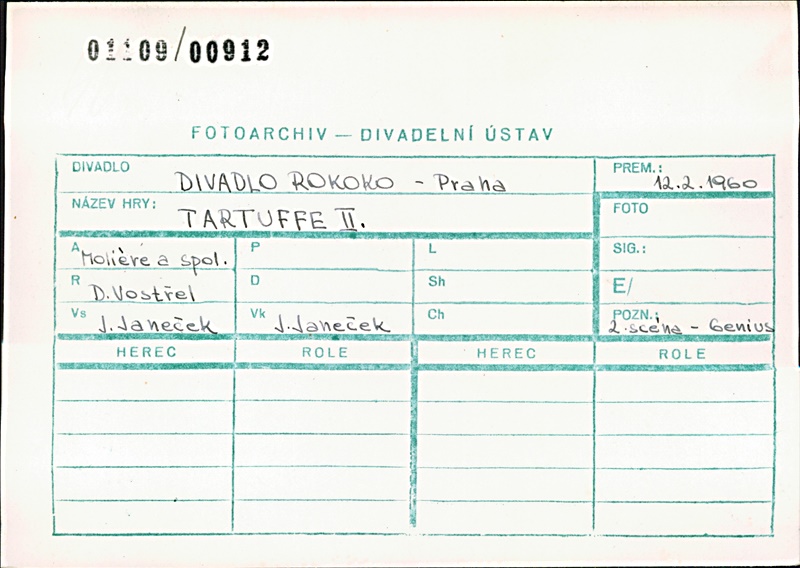 01109/00912
FOTOARCHIV — DIVADELNÍ ÚSTAV
DIVADLO DIVADLO ROKOKO - Praha
PREM.: 12.2.1960
NÁZEV HRY: TARTUFFE II.
FOTO
A Molière a spol.
P
L
SIG.:
R D.Vostřel
D
Sh
E/
Vs J.Janeček
Vk J.Janeček
Ch
POZN.: 2.scéna - Genius
HEREC ROLE HEREC ROLE